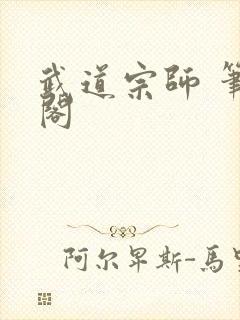 武道宗師 筆
閣
阿尔卑斯-馬